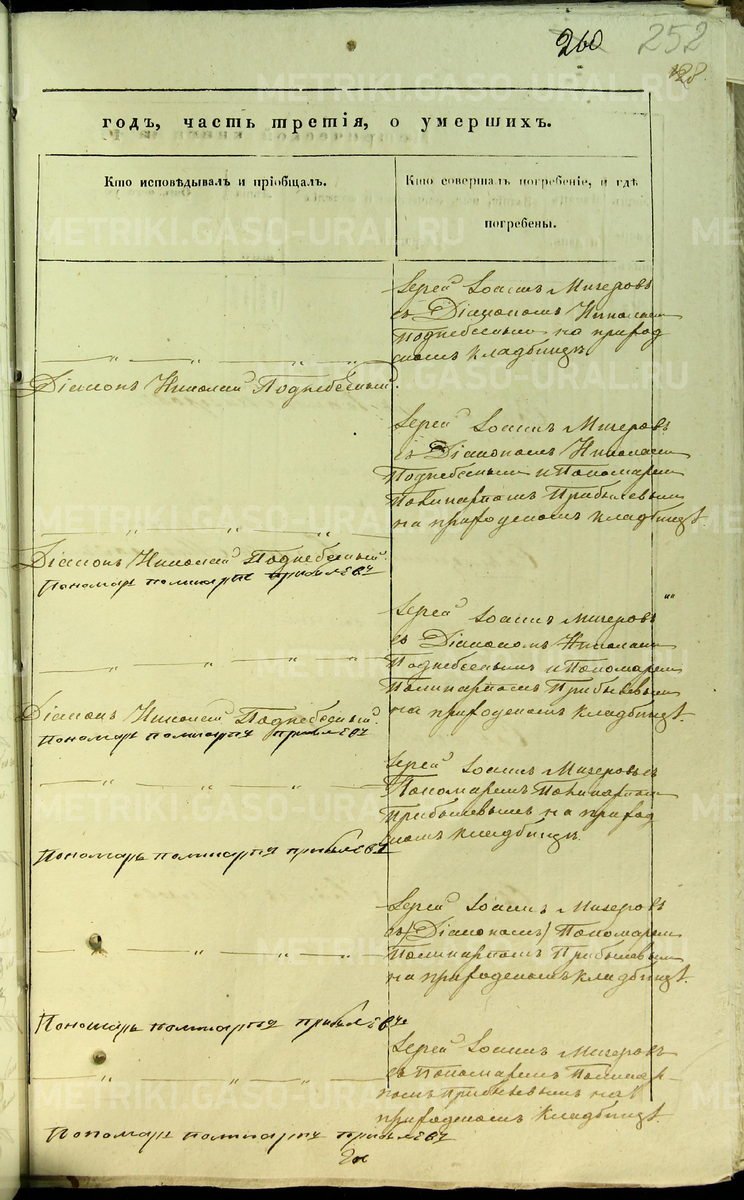 260
252
128.
годъ, часть третія, о умершихъ.
Кто исповѣдывалъ и пріобщалъ.
Кто совершалъ погребеніе, и гдѣ
погребены.
Іерей Іоаннъ Мизеровъ
съ Діакономъ Николаемъ
Поднебеснымъ на приход
скомъ кладбищѣ.
Діаконъ Николай Поднебесный.
Іерей Іоаннъ Мизеровъ
съ Діакономъ Николаемъ
Поднебеснымъ и Пономаремъ
Поликарпомъ Прибылевымъ
на приходскомъ кладбищѣ.
Діаконъ Николай Поднебесный.
Пономарь Поликарпъ Прибылевъ
Іерей Іоаннъ Мизеровъ
съ Діакономъ Николаемъ
Поднебеснымъ и Пономаремъ
Поликарпомъ Прибылевымъ
на приходскомъ кладбищѣ.
Діаконъ Николай Поднебесный.
Пономарь Поликарпъ Прибылевъ
Іерей Іоаннъ Мизеровъ съ
Пономаремъ Поликарпомъ
Прибылевымъ на приход
скомъ кладбищѣ.
Пономарь Поликарпъ Прибылевъ
Іерей Іоаннъ Мизеровъ
съ /Діакономъ/ Пономаремъ
Поликарпомъ Прибылевымъ
на приходскомъ кладбищѣ.
Пономарь Поликарпъ Прибылевъ
Іерей Іоаннъ Мизеровъ
съ Пономаремъ Поликар-
помъ Прибылевымъ на
приходскомъ кладбищѣ.
Пономарь Поликарпъ Прибылевъ
METRIKI.GASO-URAL.RU